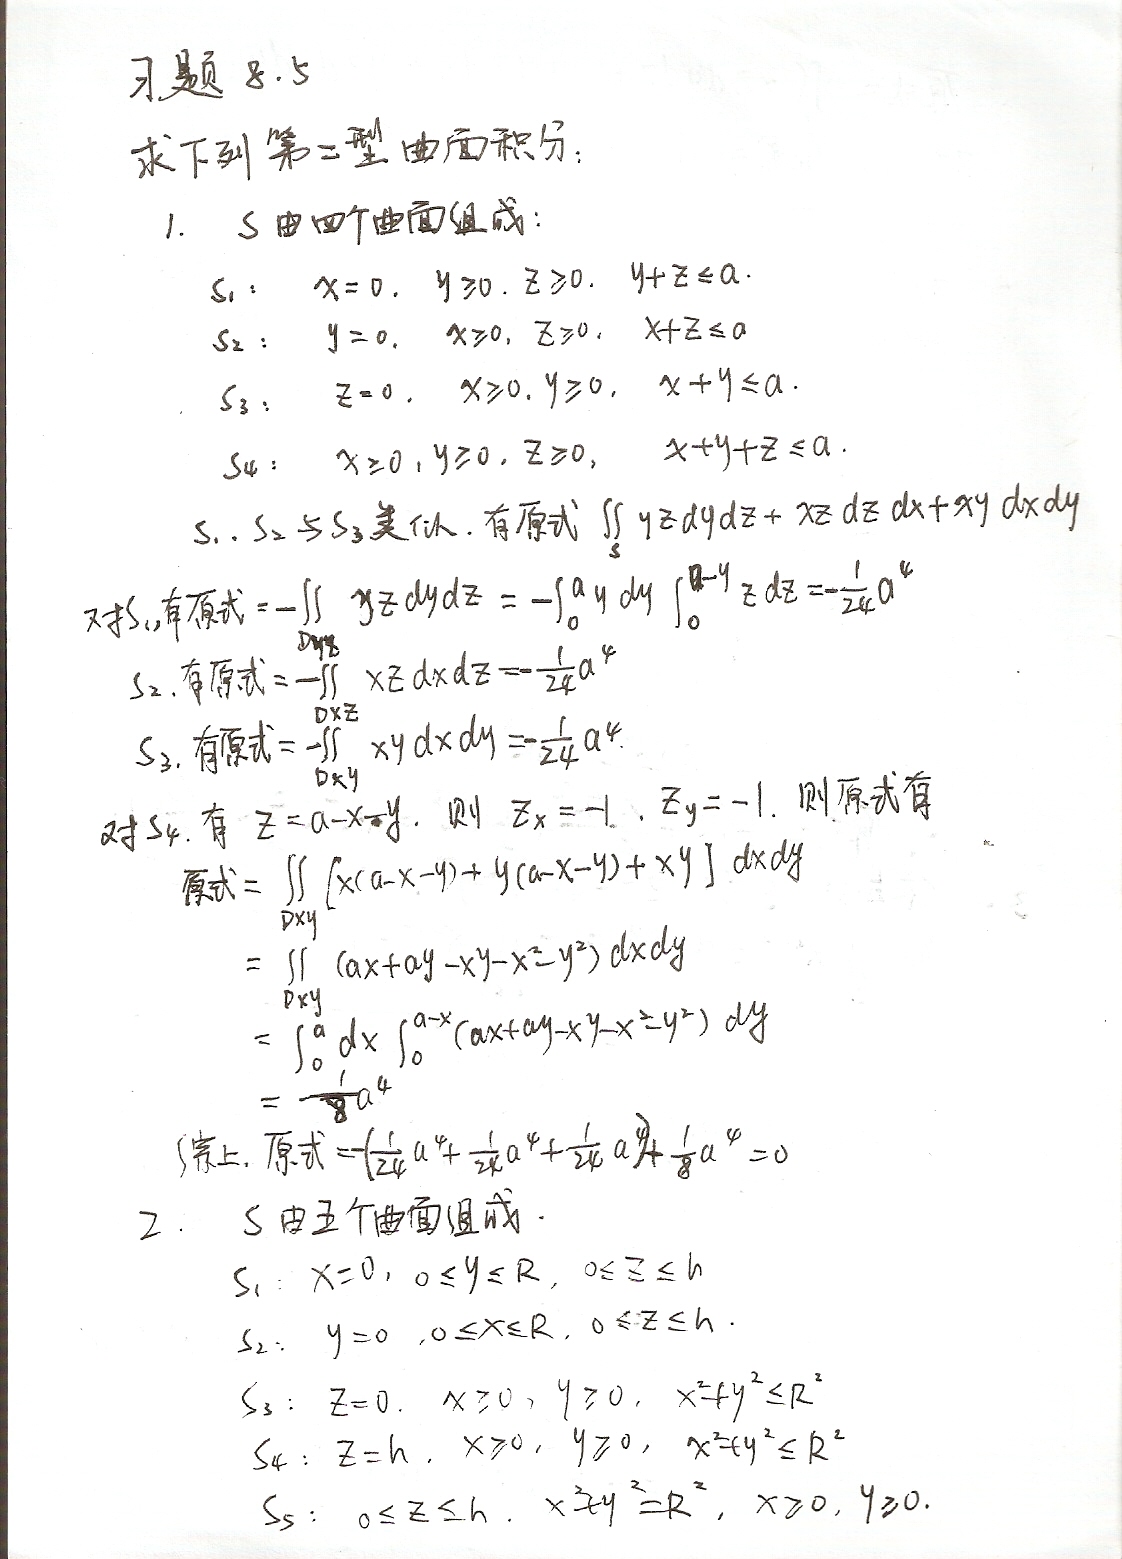 习题 8.5
求下列第二型曲面积分:
1. S由四个曲面组成:
S₁: x=0. y≥0. z≥0. y+z≤a.
S₂: y=0. x≥0, z≥0. x+z≤a
S₃: z=0. x≥0. y≥0, x+y≤a.
S₄: x≥0, y≥0. z≥0, x+y+z≤a.
S₁. S₂与S₃类似. 有原式 ∬_S yzdydz + xzdzdx + xy dxdy
对S₁,有原式 = -∬_Dyz yzdydz = -∫₀^a y dy ∫₀^(a-y) z dz = -1/24 a⁴
S₂.有原式 = -∬_Dxz xzdxdz = -1/24 a⁴
S₃.有原式 = -∬_Dxy xydxdy = -1/24 a⁴.
对S₄.有 z=a-x-y. 则 Zx=-1. Zy=-1. 则原式有
原式 = ∬_Dxy [x(a-x-y)+y(a-x-y)+xy] dxdy
= ∬_Dxy (ax+ay-xy-x²-y²) dxdy
= ∫₀^a dx ∫₀^(a-x) (ax+ay-xy-x²-y²) dy
= 1/8 a⁴
综上. 原式 = -(1/24 a⁴ + 1/24 a⁴ + 1/24 a⁴) + 1/8 a⁴ = 0
2. S由五个曲面组成.
S₁: x=0, 0≤y≤R, 0≤z≤h
S₂: y=0, 0≤x≤R, 0≤z≤h.
S₃: z=0. x≥0, y≥0, x²+y²≤R²
S₄: z=h. x≥0, y≥0, x²+y²≤R²
S₅: 0≤z≤h. x²+y²=R², x≥0, y≥0.